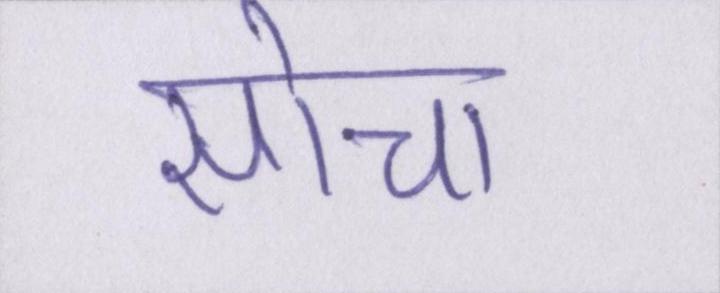 सोचा